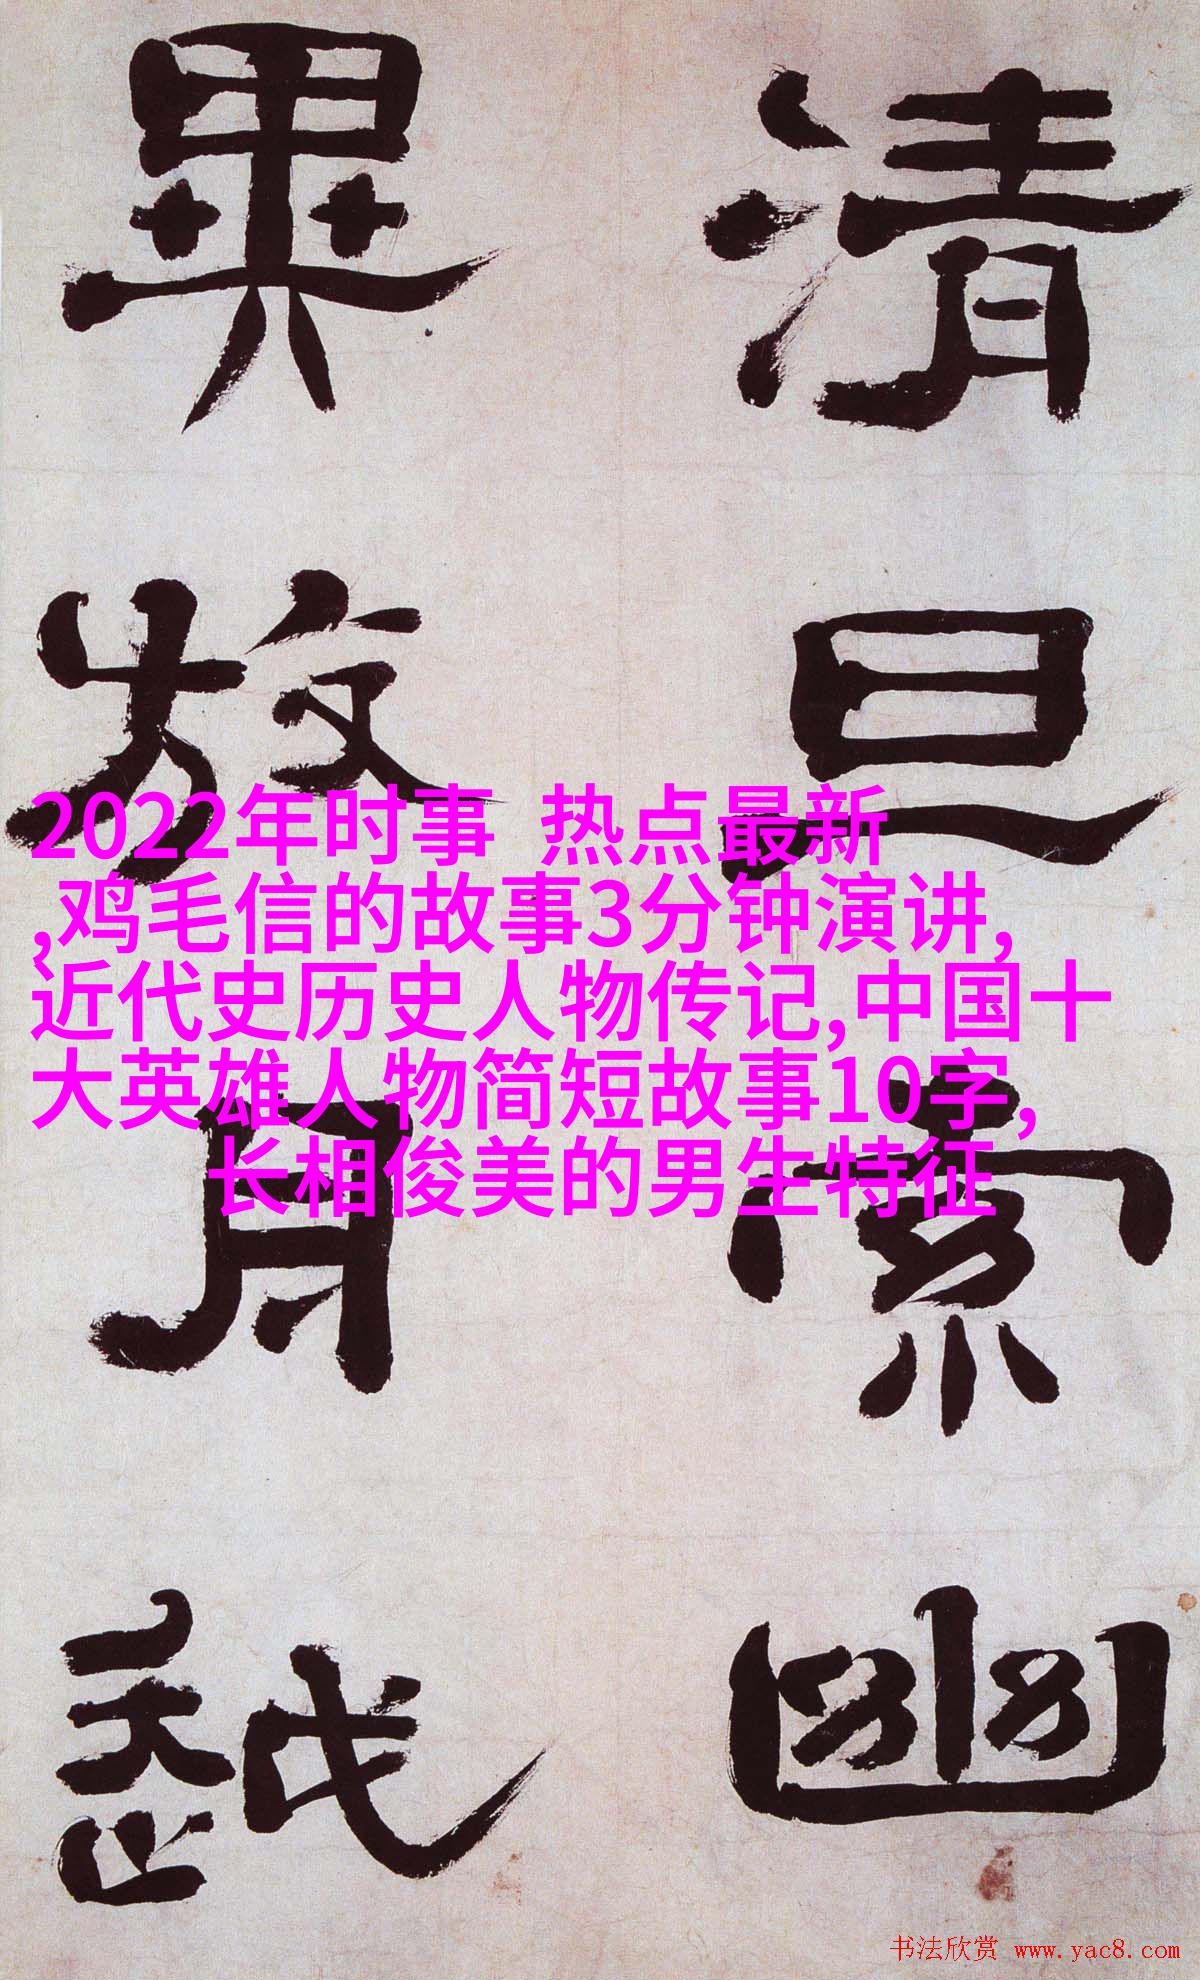 清旦索幽
異放舟越
2022年时事 热点最新
,鸡毛信的故事3分钟演讲,
近代史历史人物传记,中国十
大英雄人物简短故事10字,
长相俊美的男生特征
书法欣赏 www.yac8.com